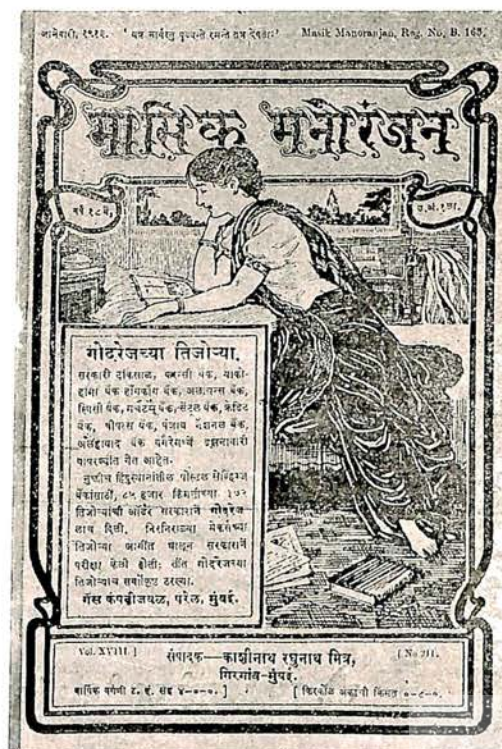 जानेवारी, १९१३. 'यत्र नार्यस्तु पूज्यन्ते रमन्ते तत्र देवताः' Masik Manoranjan, Reg. No, B. 165.
मासिक मनोरंजन
वर्ष १८ वें.
गोदरेजच्या तिजोऱ्या.
सरकारी टांकसाळ, बँक,
बँक हाँगकाँग बँक, अलायन्स बँक,
स्पिसी बँक, मर्चंट्स् बँक, सेंट्रल बँक, क्रेडिट
बँक, पीपल्स बँक, पंजाब नॅशनल बँक,
अलाहाबाद बँक वगैरेंमध्यें
वापरण्यांत येत आहेत.
हिंदुस्थानांतील पोस्टल सेव्हिंग्ज
बँकांसाठीं, ८५ हजार किंमतीच्या
तिजोऱ्यांची ऑर्डर सरकारानें गोदरेज
लाच दिली. निरनिराळ्या मेकर्सच्या
तिजोऱ्या आगींत घालून सरकारानें
परीक्षा केली होती; तींत गोदरेजच्या
तिजोऱ्याच सर्वोत्कृष्ट ठरल्या.
गॅस कंपनीजवळ, परेल, मुंबई.
Vol. XVIII. ] [ No 211.
संपादक—काशीनाथ रघुनाथ मित्र,
गिरगांव-मुंबई.
वार्षिक वर्गणी ट. हं. सह ४-०-०. ] [ किरकोळ अंकाची किंमत ०-८-०.